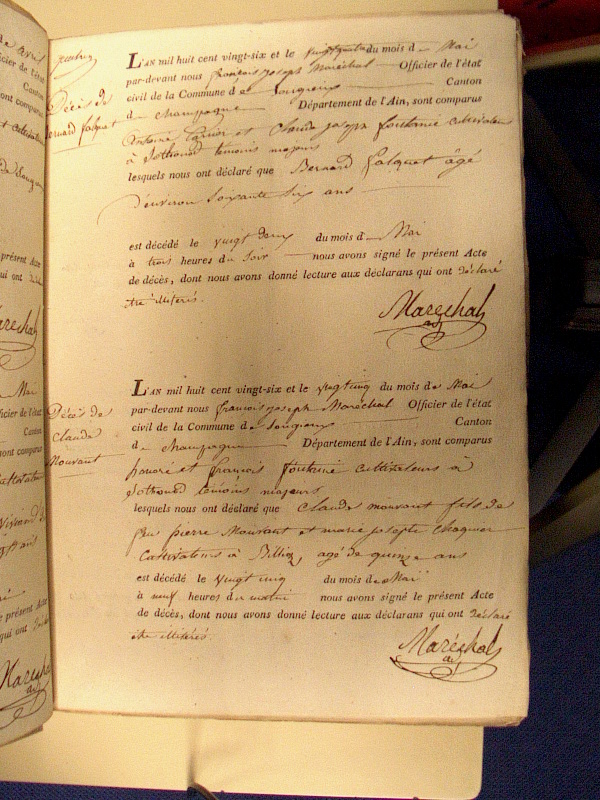 Décès de
Bernard falquet
L'AN mil huit cent vingt-six et le du mois de Mai
par-devant nous françois joseph Maréchal Officier de l'état
civil de la Commune de Songieu Canton
de champagne Département de l'Ain, sont comparus
Antoine et claude joseph fontaine cultivateurs
à Sothonod témoins majeurs
lesquels nous ont déclaré que Bernard falquet âgé
d'environ soixante six ans
est décédé le vingt deux du mois de Mai
à trois heures du soir nous avons signé le présent Acte
de décès, dont nous avons donné lecture aux déclarans qui ont déclaré
être illitérés.
Maréchal
Décès de
Claude
Mouvant
L'AN mil huit cent vingt-six et le vingt cinq du mois de Mai
par-devant nous françois joseph Maréchal Officier de l'état
civil de la Commune de Songieu Canton
de champagne Département de l'Ain, sont comparus
honoré et françois fontaine cultivateurs à
Sothonod témoins majeurs
lesquels nous ont déclaré que claude mouvant fils de
feu pierre Mouvant et marie josephe
Cultivateurs à Billieu, agé de quinze ans
est décédé le vingt cinq du mois de Mai
à neuf heures du matin nous avons signé le présent Acte
de décès, dont nous avons donné lecture aux déclarans qui ont déclaré
être illitérés.
Maréchal